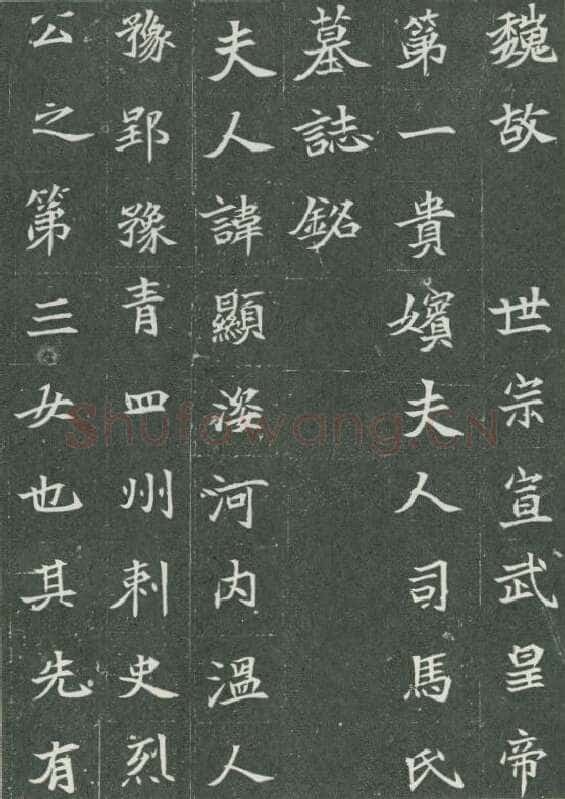 魏故世宗宣武皇帝
第一貴嬪夫人司馬氏
墓誌銘
夫人諱顯姿河內溫人
豫郢豫青四州刺史烈
公之第三女也其先有
Shufawang.CN